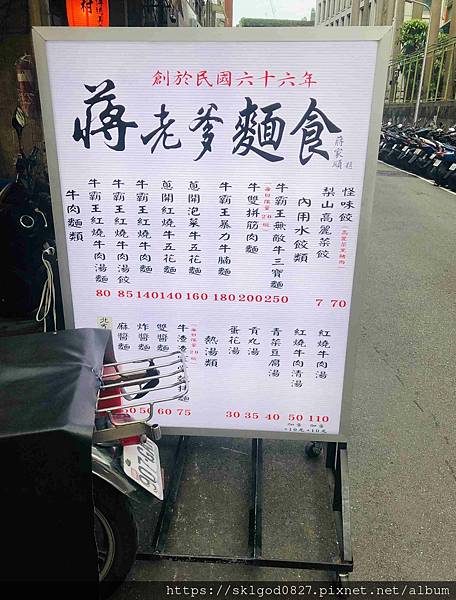 創於民國六十六年
蔣老爹麵食
蔣家順題
怪味餃
梨山高麗菜餃
(高麗菜黑豬肉)
內用水餃類
牛霸王無敵牛三寶麵
(每日限量20碗)
牛雙拼筋肉麵
牛霸王暴力牛腩麵
蔥開泡菜牛五花麵
蔥開紅燒牛五花麵
牛霸王紅燒牛肉麵
牛霸王紅燒牛肉湯餃
牛霸王紅燒牛肉湯麵
牛肉麵類
80 85 140 140 160 180 200 250 7 70
紅燒牛肉湯
紅燒牛肉清湯
青菜豆腐湯
貢丸湯
蛋花湯
熱湯類
雙醬麵
炸醬麵
麻醬麵
50 60 75 30 35 40 50 110
+10元 +10元
村
https://sk1god0827.pixnet.net/album